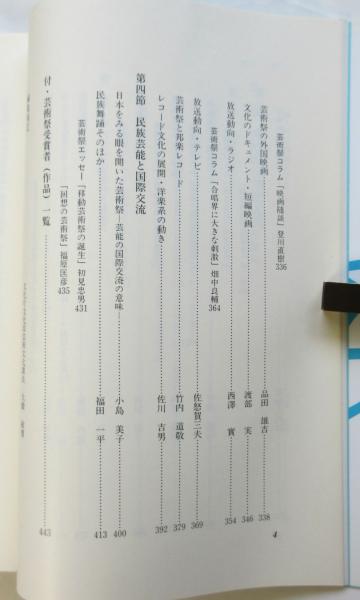 芸術祭コラム「映画随談」登川直樹 336
芸術祭の外国映画 品田 雄吉 338
文化のドキュメント・短編映画 渡部 実 346
放送動向・ラジオ 西澤 實 354
芸術祭コラム「合唱界に大きな刺激」畑中良輔 364
放送動向・テレビ 佐怒賀三夫 369
芸術祭と邦楽レコード 竹内 道敬 379
レコード文化の展開・洋楽系の動き 佐川 吉男 392
第四節 民族芸能と国際交流
日本をみる眼を開いた芸術祭―芸能の国際交流の意味 小島 美子 400
民族舞踊そのほか 福田 一平 413
芸術祭エッセー「移動芸術祭の誕生」初見忠男 431
「回想の芸術祭」福原匡彦 435
付・芸術祭受賞者(作品)一覧 443
4